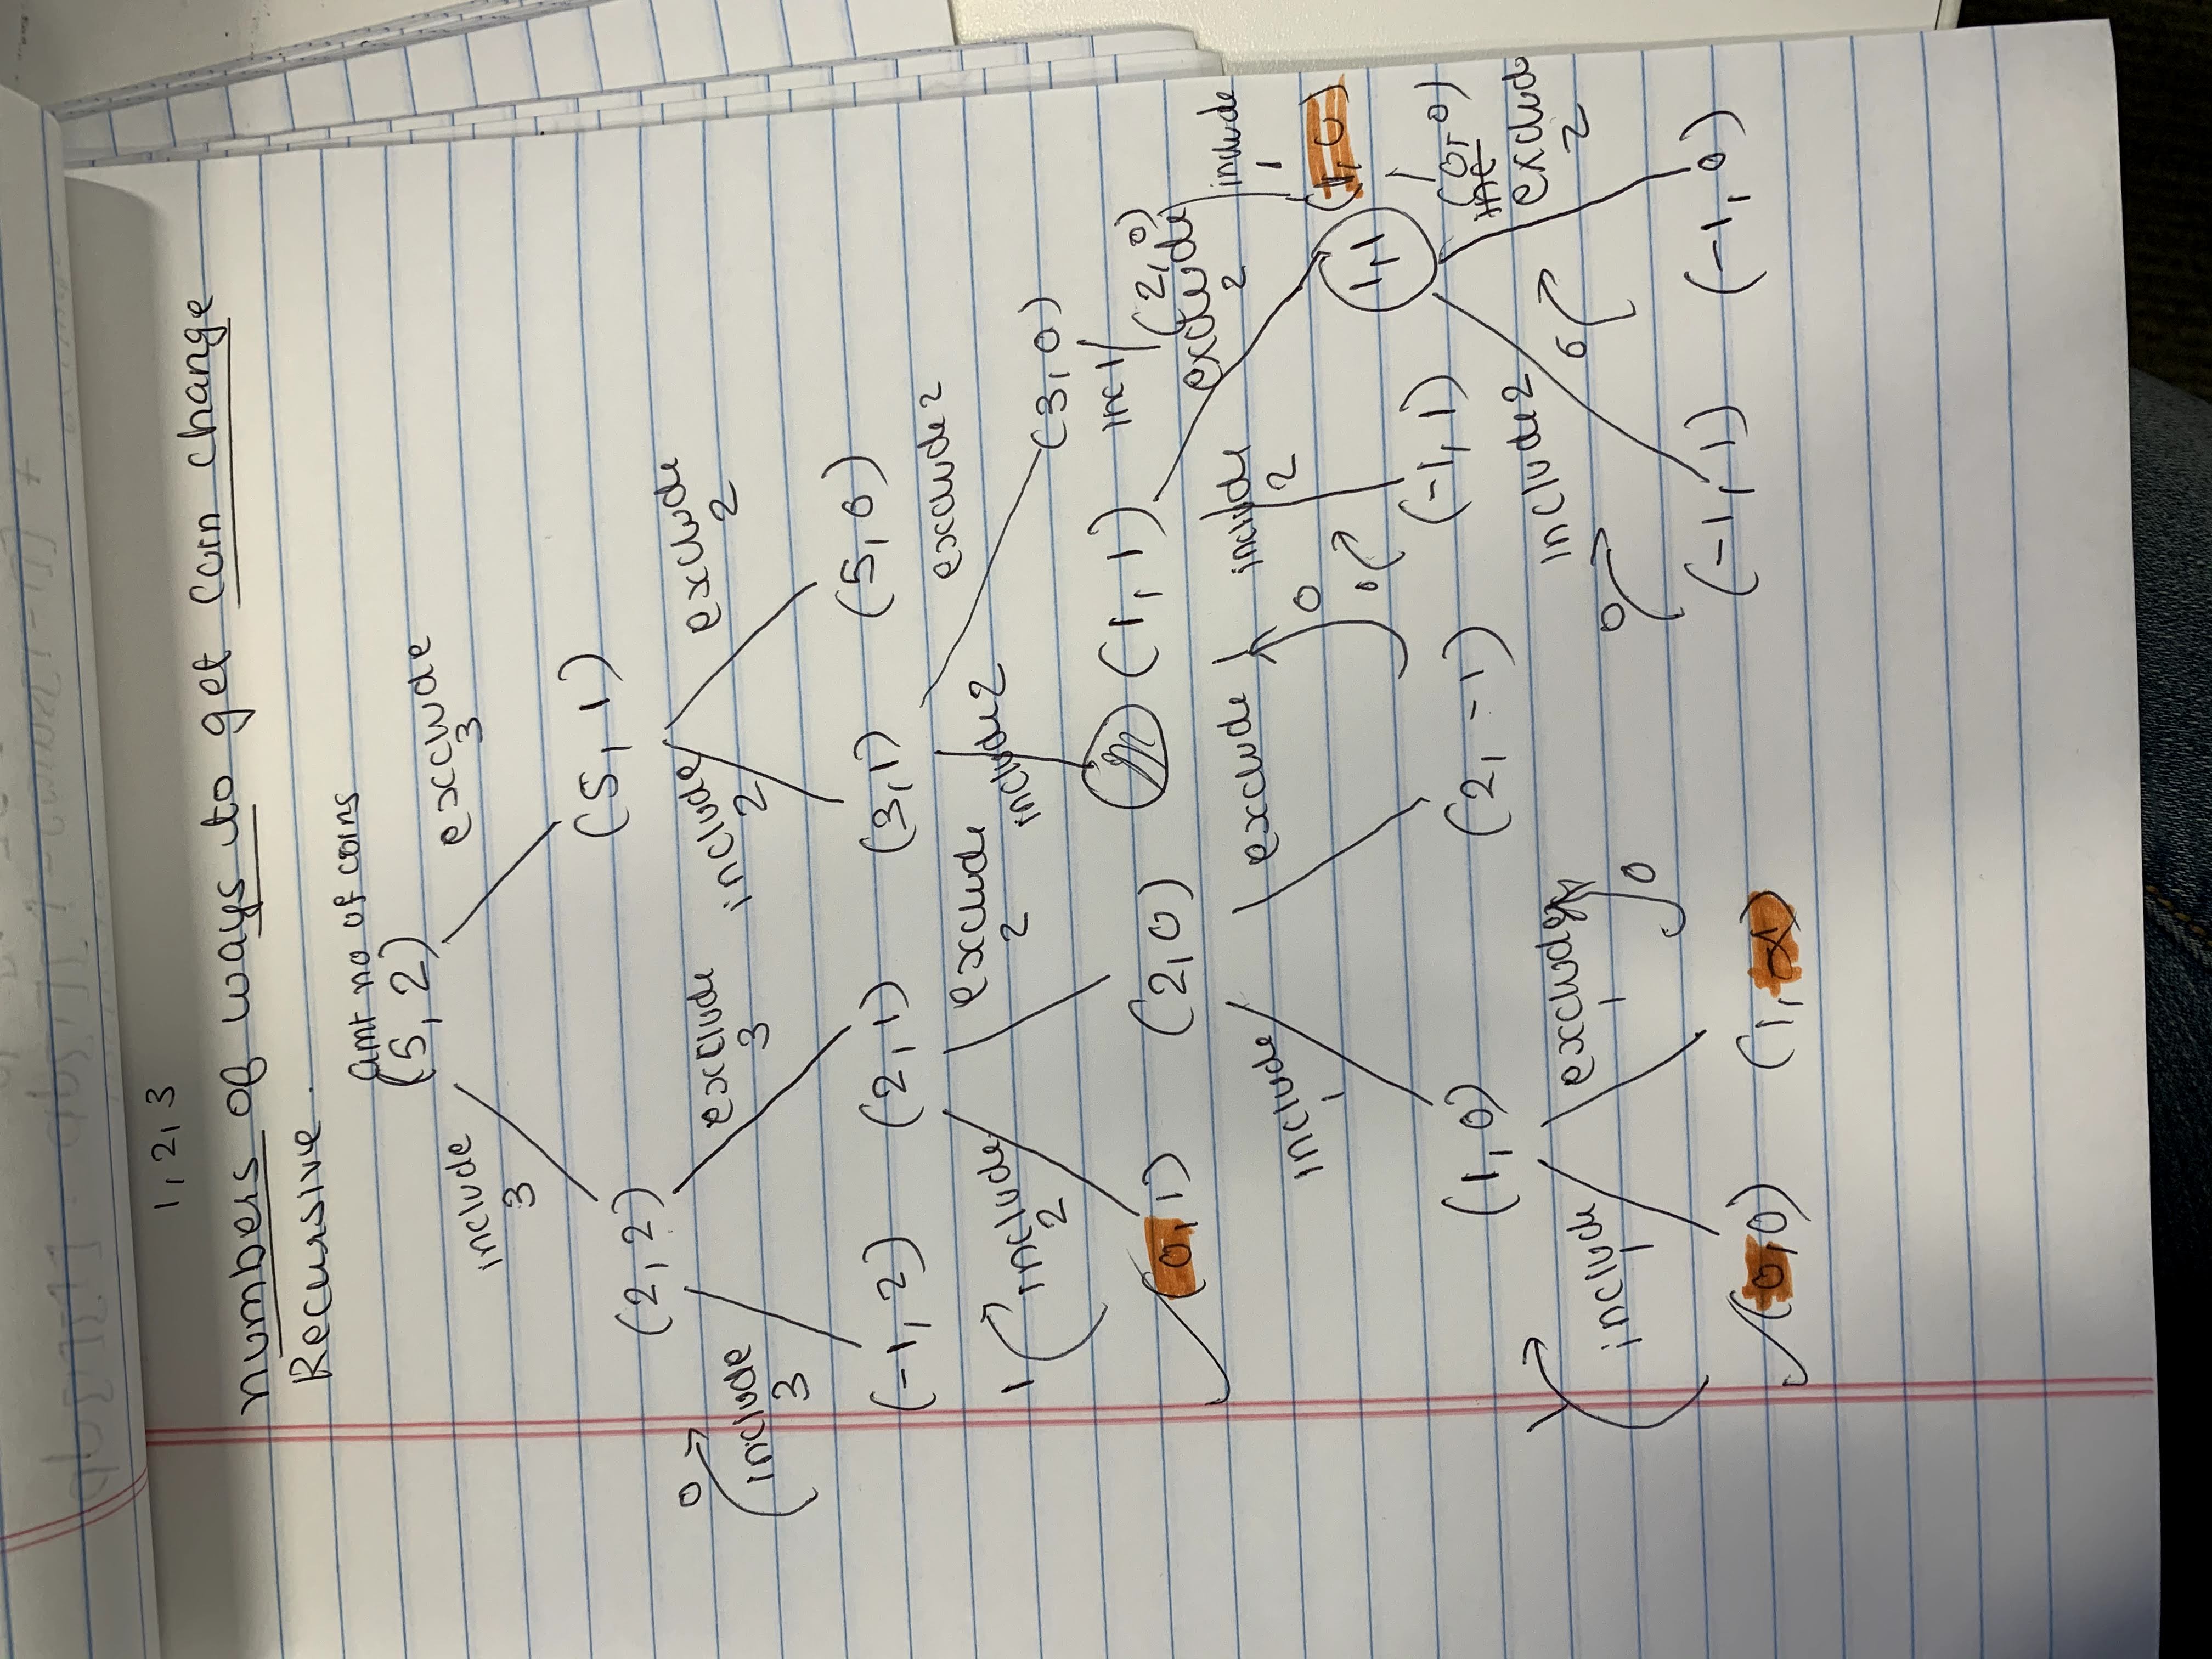 1, 2, 3
numbers of ways to get coin change
Recursive.
amt no of coins
(5, 2)
include
3
excclude
3
(2, 2)
(5, 1)
0
include
3
exclude
3
include
2
exclude
2
(-1, 2)
(2, 1)
(3, 1)
(5, 0)
1
include
2
exclude
2
include 2
exclude 2
(3, 0)
(0, 1)
(2, 0)
(1, 1)
inc 1
(2, 0)
include
1
exclude
0
include
2
exclude
2
include
1
(1, 0)
1, 1
(1, 0)
(2, -1)
(-1, 1)
(0, 0)
inc
include
1
exclude
1
0
include 2
0
0
exclude
2
(0, 0)
(1, -1)
(-1, 1)
(-1, 0)